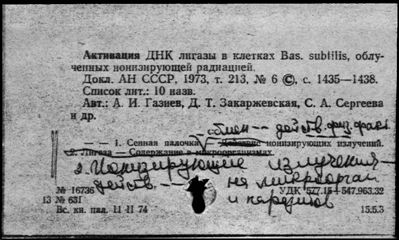 Активация ДНК лигазы в клетках Bas. subtilis, облу-
ченных ионизирующей радиацией.
Докл. АН СССР, 1973, т. 213, № 6 ©, с. 1435—1438.
Список лит.: 10 назв.
Авт.: А. И. Газиев, Д. Т. Закаржевская, С. А. Сергеева
и др.
обмен -- действ. физ. факт.
— 1. Сенная палочка — Действие ионизирующих излучений.
2. Лигаза — Содержание в микроорганизмах
2. Ионизирующие излучения —
действ. -- на микроорган
№ 16736 УДК 577.15+547.963.32
и паразитов
13 № 631
Вс. кн. пал. 11 II 74 15.5.3